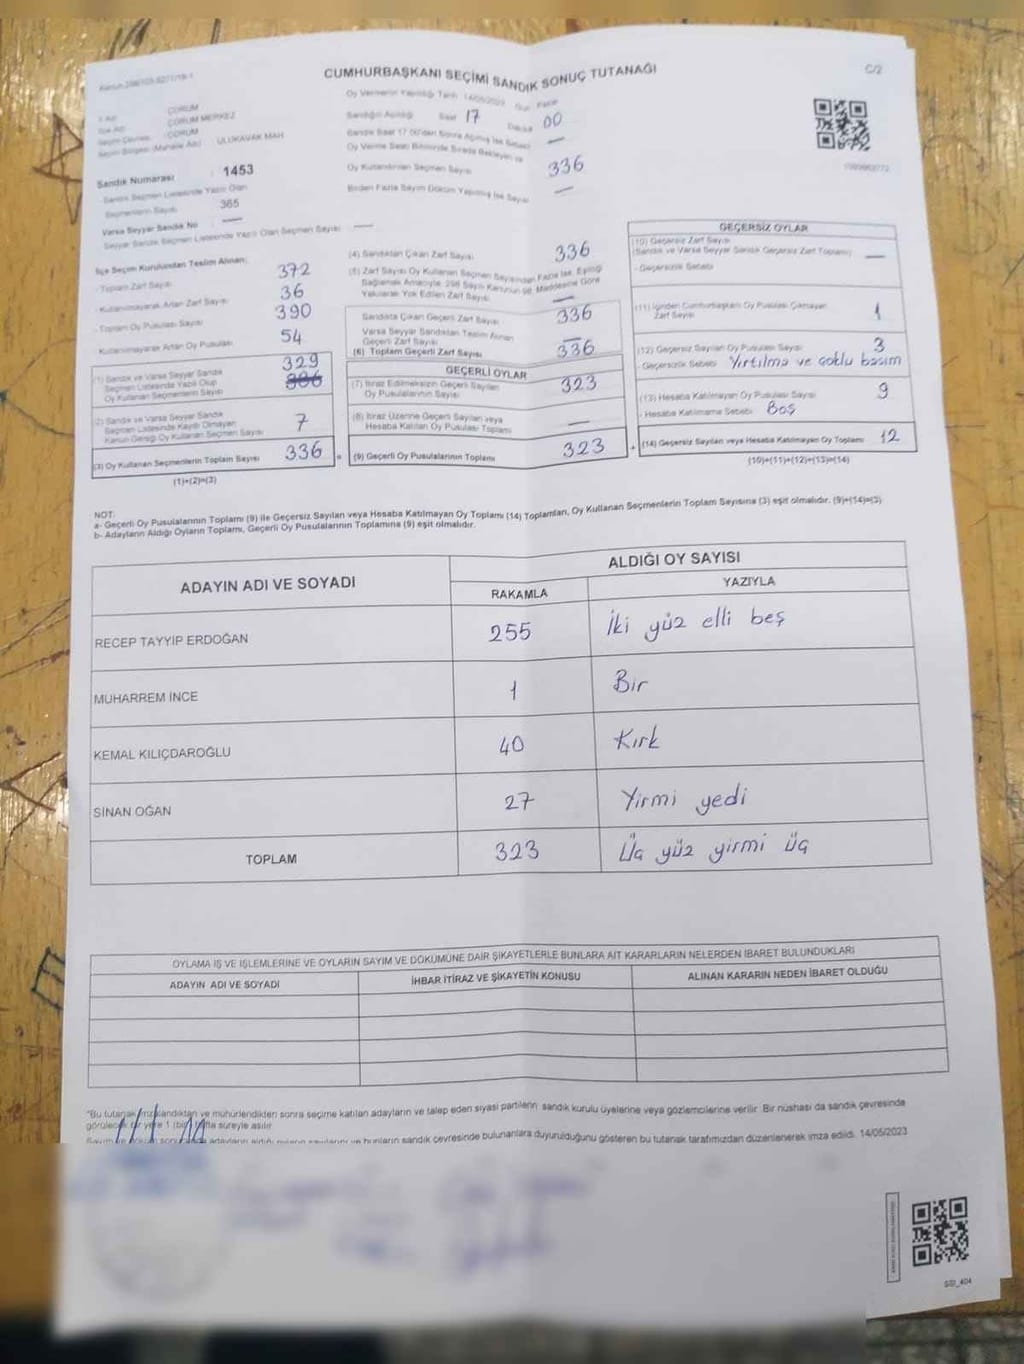 CUMHURBAŞKANI SEÇİMİ SANDIK SONUÇ TUTANAĞI
C/2
Oy Vermenin Yapıldığı Tarih 14/05/2023 Gün Pazar
Sandığın Açıldığı Saat 17 Dakika 00
Sandık Saat 17.00'den Sonra Açılmış İse Sebebi —
ÇORUM
ÇORUM MERKEZ
ÇORUM
Seçim Bölgesi (Mahalle Adı) ULUKAVAK MAH
Oy Verme Saati Bitiminde Sırada Bekleyen ve
Oy Kullandırılan Seçmen Sayısı 336
Birden Fazla Sayım Döküm Yapılmış İse Sayısı —
Sandık Numarası : 1453
Sandık Seçmen Listesinde Yazılı Olan
Seçmenlerin Sayısı 365
Varsa Seyyar Sandık No : —
Seyyar Sandık Seçmen Listesinde Yazılı Olan Seçmen Sayısı : —
İlçe Seçim Kurulundan Teslim Alınan;
- Toplam Zarf Sayısı 372
- Kullanılmayarak Artan Zarf Sayısı 36
- Toplam Oy Pusulası Sayısı 390
- Kullanılmayarak Artan Oy Pusulası 54
(1) Sandık ve Varsa Seyyar Sandık
Seçmen Listesinde Yazılı Olup
Oy Kullanan Seçmenlerin Sayısı 329
(2) Sandık ve Varsa Seyyar Sandık
Seçmen Listesinde Kayıtlı Olmayan
Kanun Gereği Oy Kullanan Seçmen Sayısı 7
(3) Oy Kullanan Seçmenlerin Toplam Sayısı 336
(1)+(2)=(3)
(4) Sandıktan Çıkan Zarf Sayısı 336
(5) Zarf Sayısı Oy Kullanan Seçmen Sayısından Fazla İse, Eşitliği
Sağlamak Amacıyla; 298 Sayılı Kanunun 98. Maddesine Göre
Yakılarak Yok Edilen Zarf Sayısı —
Sandıkta Çıkan Geçerli Zarf Sayısı 336
Varsa Seyyar Sandıktan Teslim Alınan
Geçerli Zarf Sayısı —
(6) Toplam Geçerli Zarf Sayısı 336
GEÇERLİ OYLAR
(7) İtiraz Edilmeksizin Geçerli Sayılan
Oy Pusulalarının Sayısı 323
(8) İtiraz Üzerine Geçerli Sayılan veya
Hesaba Katılan Oy Pusulası Toplamı —
(9) Geçerli Oy Pusulalarının Toplamı 323
GEÇERSİZ OYLAR
(10) Geçersiz Zarf Sayısı
(Sandık ve Varsa Seyyar Sandık Geçersiz Zarf Toplamı) —
- Geçersizlik Sebebi
(11) İçinden Cumhurbaşkanı Oy Pusulası Çıkmayan
Zarf Sayısı 1
(12) Geçersiz Sayılan Oy Pusulası Sayısı 3
- Geçersizlik Sebebi Yırtılma ve çoklu basım
(13) Hesaba Katılmayan Oy Pusulası Sayısı 9
- Hesaba Katılmama Sebebi Boş
(14) Geçersiz Sayılan veya Hesaba Katılmayan Oy Toplamı 12
(10)+(11)+(12)+(13)=(14)
NOT:
a- Geçerli Oy Pusulalarının Toplamı (9) ile Geçersiz Sayılan veya Hesaba Katılmayan Oy Toplamı (14) Toplamları, Oy Kullanan Seçmenlerin Toplam Sayısına (3) eşit olmalıdır. (9)+(14)=(3)
b- Adayların Aldığı Oyların Toplamı, Geçerli Oy Pusulalarının Toplamına (9) eşit olmalıdır.
ADAYIN ADI VE SOYADI
ALDIĞI OY SAYISI
RAKAMLA YAZIYLA
RECEP TAYYİP ERDOĞAN 255 İki yüz elli beş
MUHARREM İNCE 1 Bir
KEMAL KILIÇDAROĞLU 40 Kırk
SİNAN OĞAN 27 Yirmi yedi
TOPLAM 323 Üç yüz yirmi üç
OYLAMA İŞ VE İŞLEMLERİNE VE OYLARIN SAYIM VE DÖKÜMÜNE DAİR ŞİKAYETLERLE BUNLARA AİT KARARLARIN NELERDEN İBARET BULUNDUKLARI
ADAYIN ADI VE SOYADI İHBAR İTİRAZ VE ŞİKAYETİN KONUSU ALINAN KARARIN NEDEN İBARET OLDUĞU
"Bu tutanak imzalandıktan ve mühürlendikten sonra seçime katılan adayların ve talep eden siyasi partilerin sandık kurulu üyelerine veya gözlemcilerine verilir. Bir nüshası da sandık çevresinde
görülecek bir yere 1 (bir) hafta süreyle asılır.
Sayım ve döküm sonucunda adayların aldığı oyların sayılarını ve bunların sandık çevresinde bulunanlara duyurulduğunu gösteren bu tutanak tarafımızdan düzenlenerek imza edildi. 14/05/2023